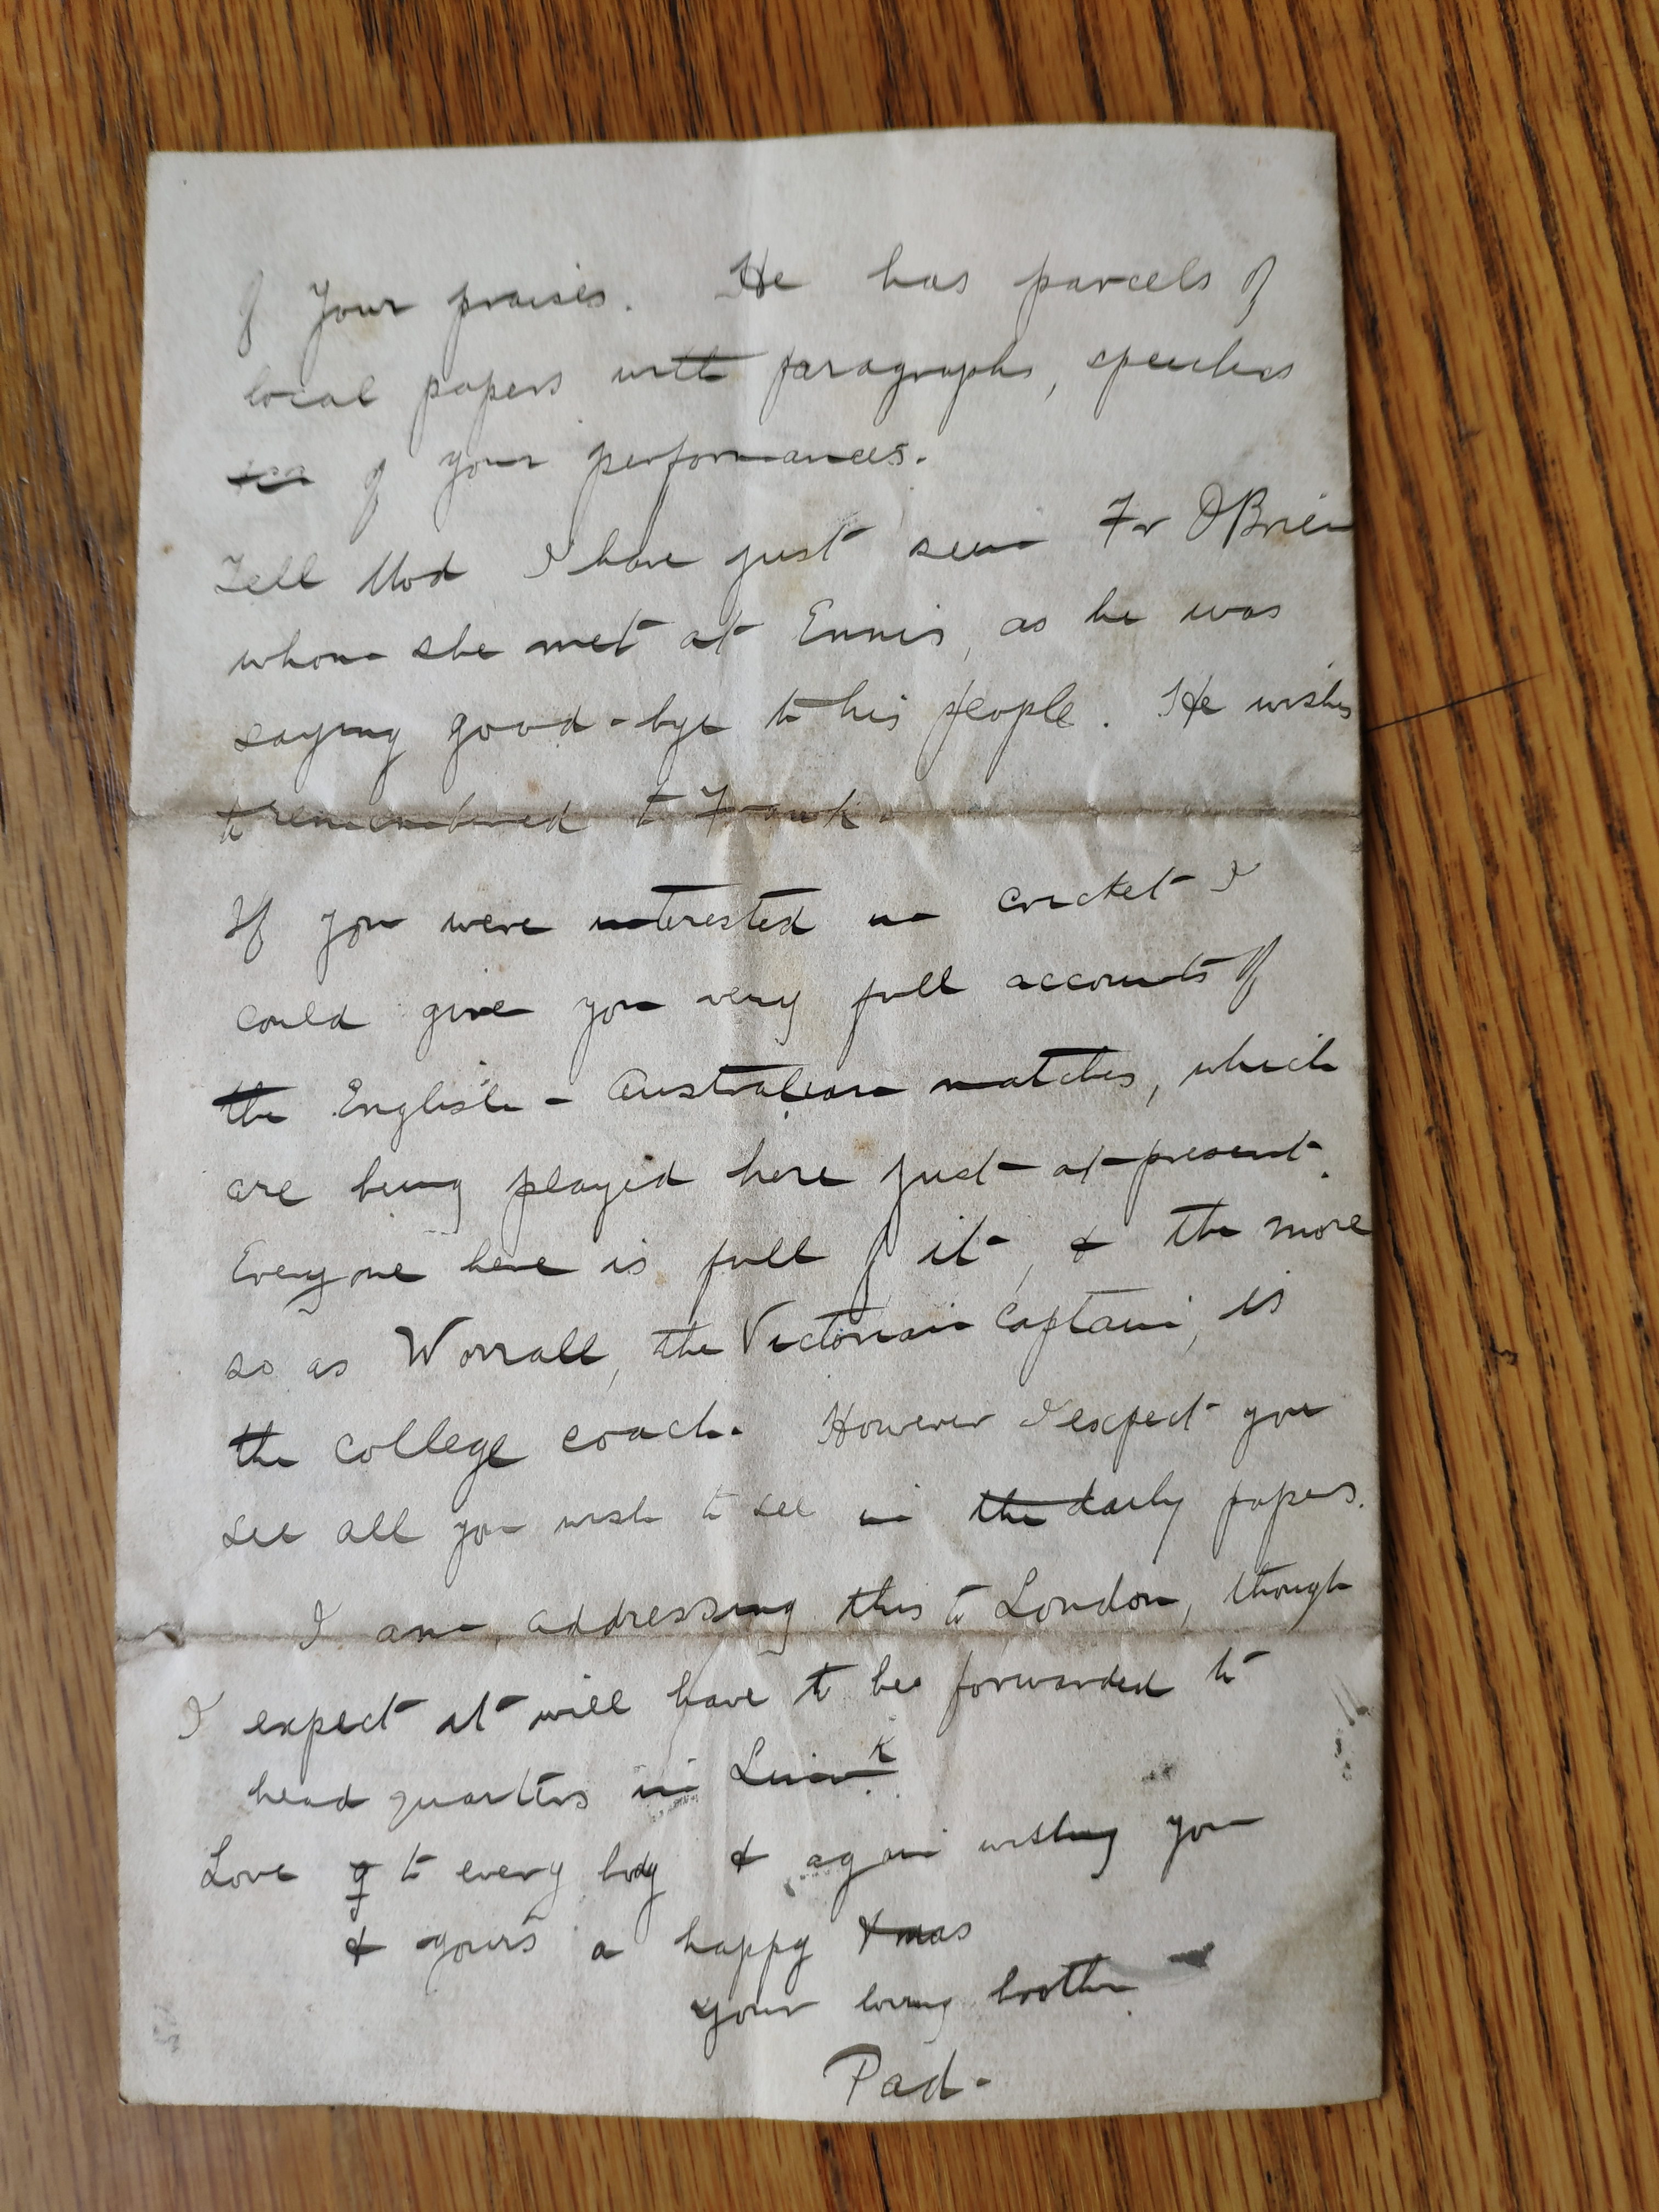 of Your praises. He has parcels of
local papers with paragraphs, speeches
of your performances.
Tell Mod I have just seen Fr O'Brien
whom she met at Ennis, as he was
saying good-bye to his people. He wishes
to remembered to Frank.
If you were interested in cricket I
could give you very full accounts of
the English - Australian matches, which
are being played here just at present.
Everyone here is full of it, & the more
so as Worrall, the Victorian Captain, is
the college coach. However I expect you
see all you wish to see in the daily papers.
I am addressing this to London, though
I expect it will have to be forwarded to
head quarters in Limk.
Love to every body & again wishing you
& yours a happy Xmas
Your loving brother
Pad.